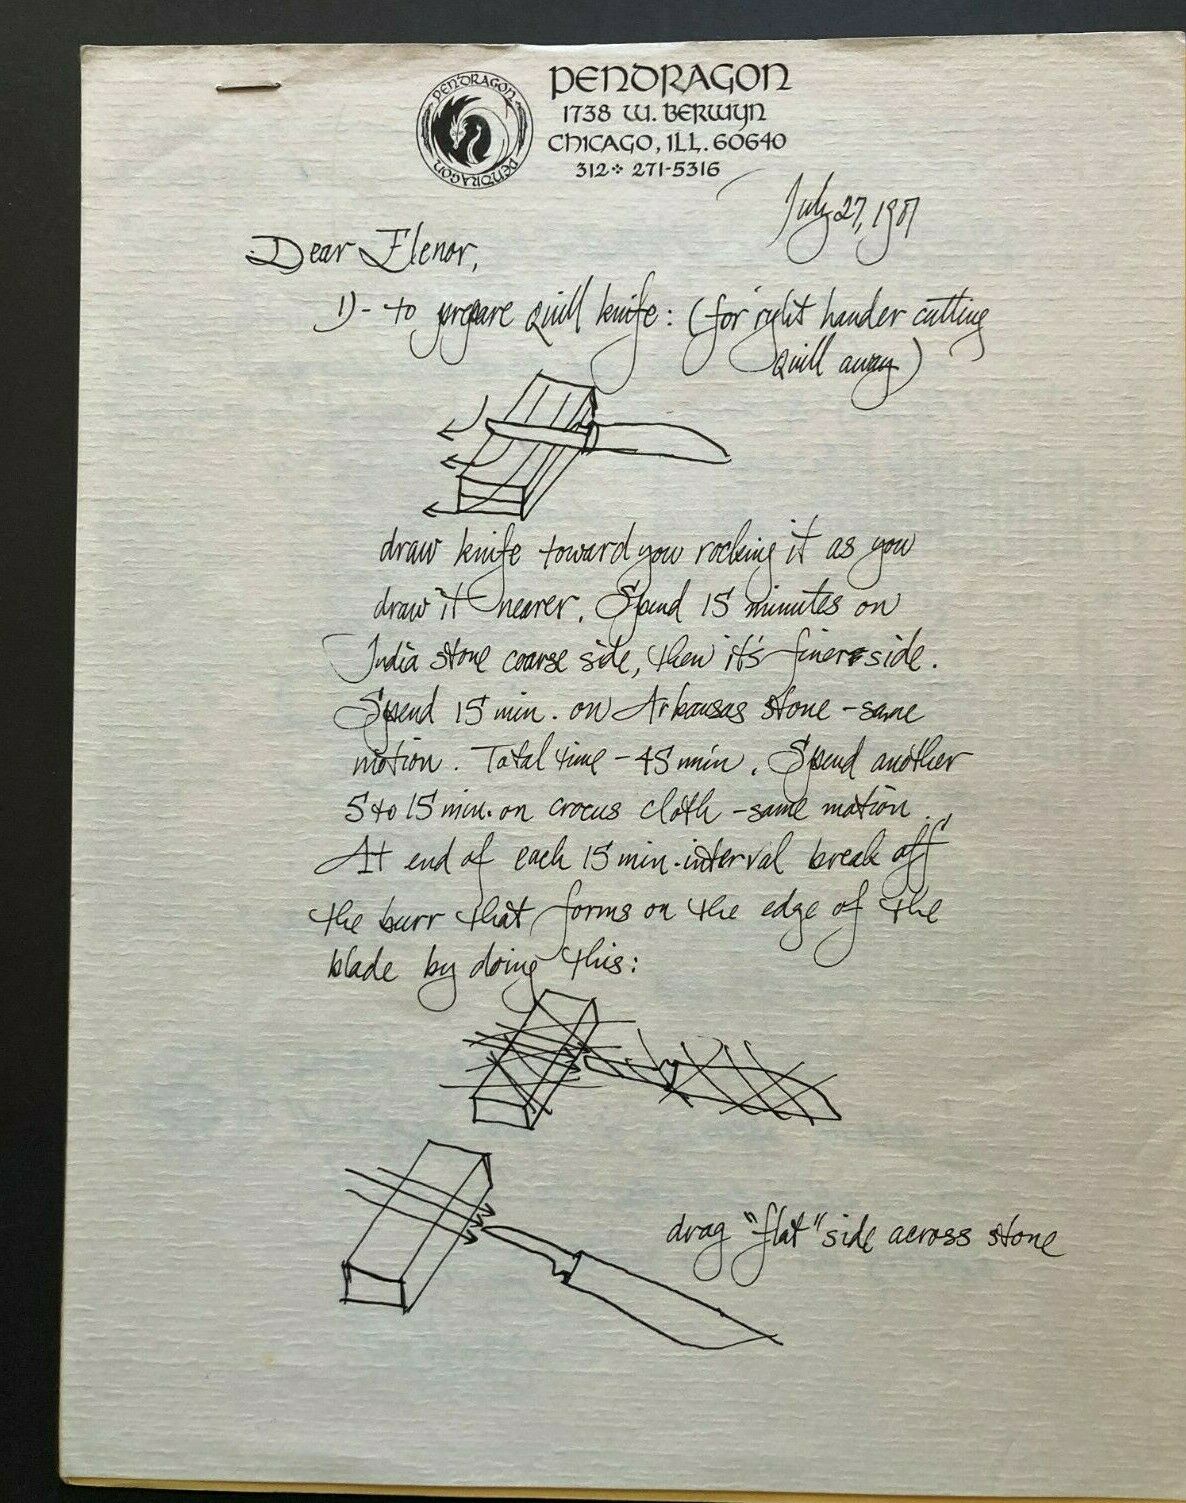 PENDRAGON
PENDRAGON
PENDRAGON
1738 W. BERWYN
CHICAGO, ILL. 60640
312 271-5316
July 27, 1981
Dear Elenor,
1)- to prepare Quill knife: (for right hander cutting
Quill away)
draw knife toward you rocking it as you
draw it nearer. Spend 15 minutes on
India stone coarse side, then it's finer side.
Spend 15 min. on Arkansas stone - same
motion. Total time - 45 min. Spend another
5 to 15 min. on crocus cloth - same motion.
At end of each 15 min. interval break off
the burr that forms on the edge of the
blade by doing this:
drag "flat" side across stone